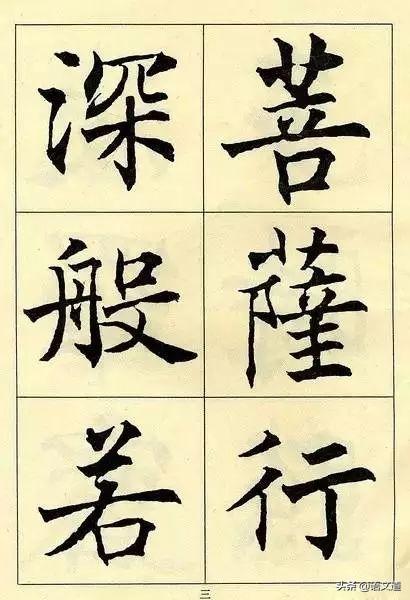 菩薩行
深般若
三
头条@语文道